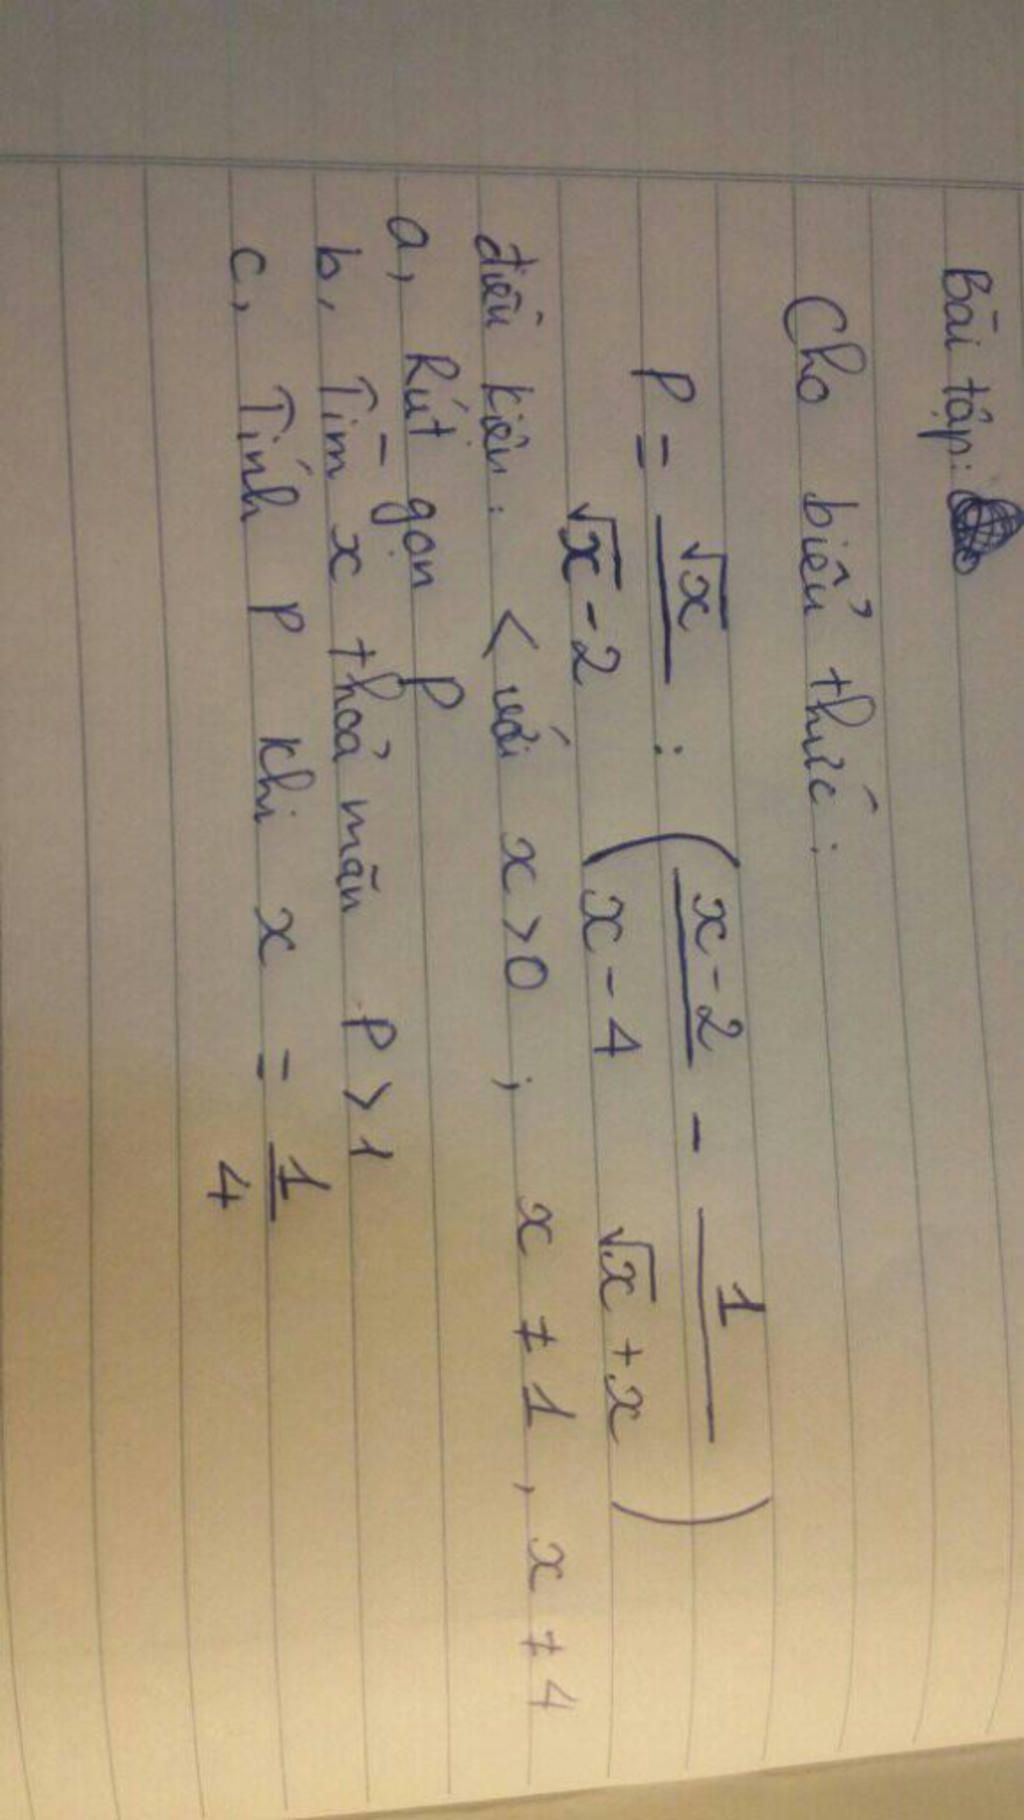 Bài tập:
Cho biểu thức:
P = √x / (√x - 2) : ( (x - 2) / (x - 4) - 1 / (√x + x) )
điều kiện: < với x > 0 ; x ≠ 1 , x ≠ 4
a, Rút gọn P
b, Tìm x thoả mãn P > 1
c, Tính P khi x = 1/4